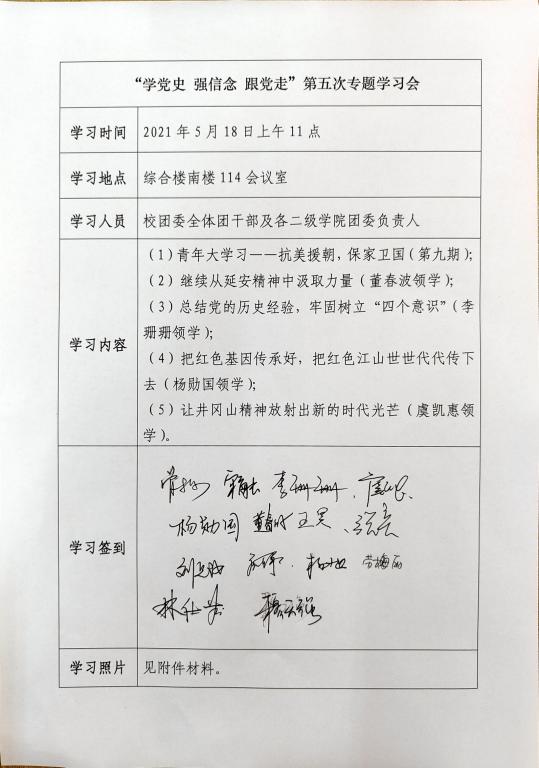 “学党史 强信念 跟党走”第五次专题学习会
学习时间
2021 年 5 月 18 日上午 11 点
学习地点
综合楼南楼 114 会议室
学习人员
校团委全体团干部及各二级学院团委负责人
学习内容
（1）青年大学习——抗美援朝，保家卫国（第九期）；
（2）继续从延安精神中汲取力量（董春波领学）；
（3）总结党的历史经验，牢固树立“四个意识”（李
珊珊领学）；
（4）把红色基因传承好，把红色江山世世代代传下
去（杨勋国领学）；
（5）让井冈山精神放射出新的时代光芒（虞凯惠领
学）。
学习签到
李珊珊
杨勋国 王昊
学习照片
见附件材料。